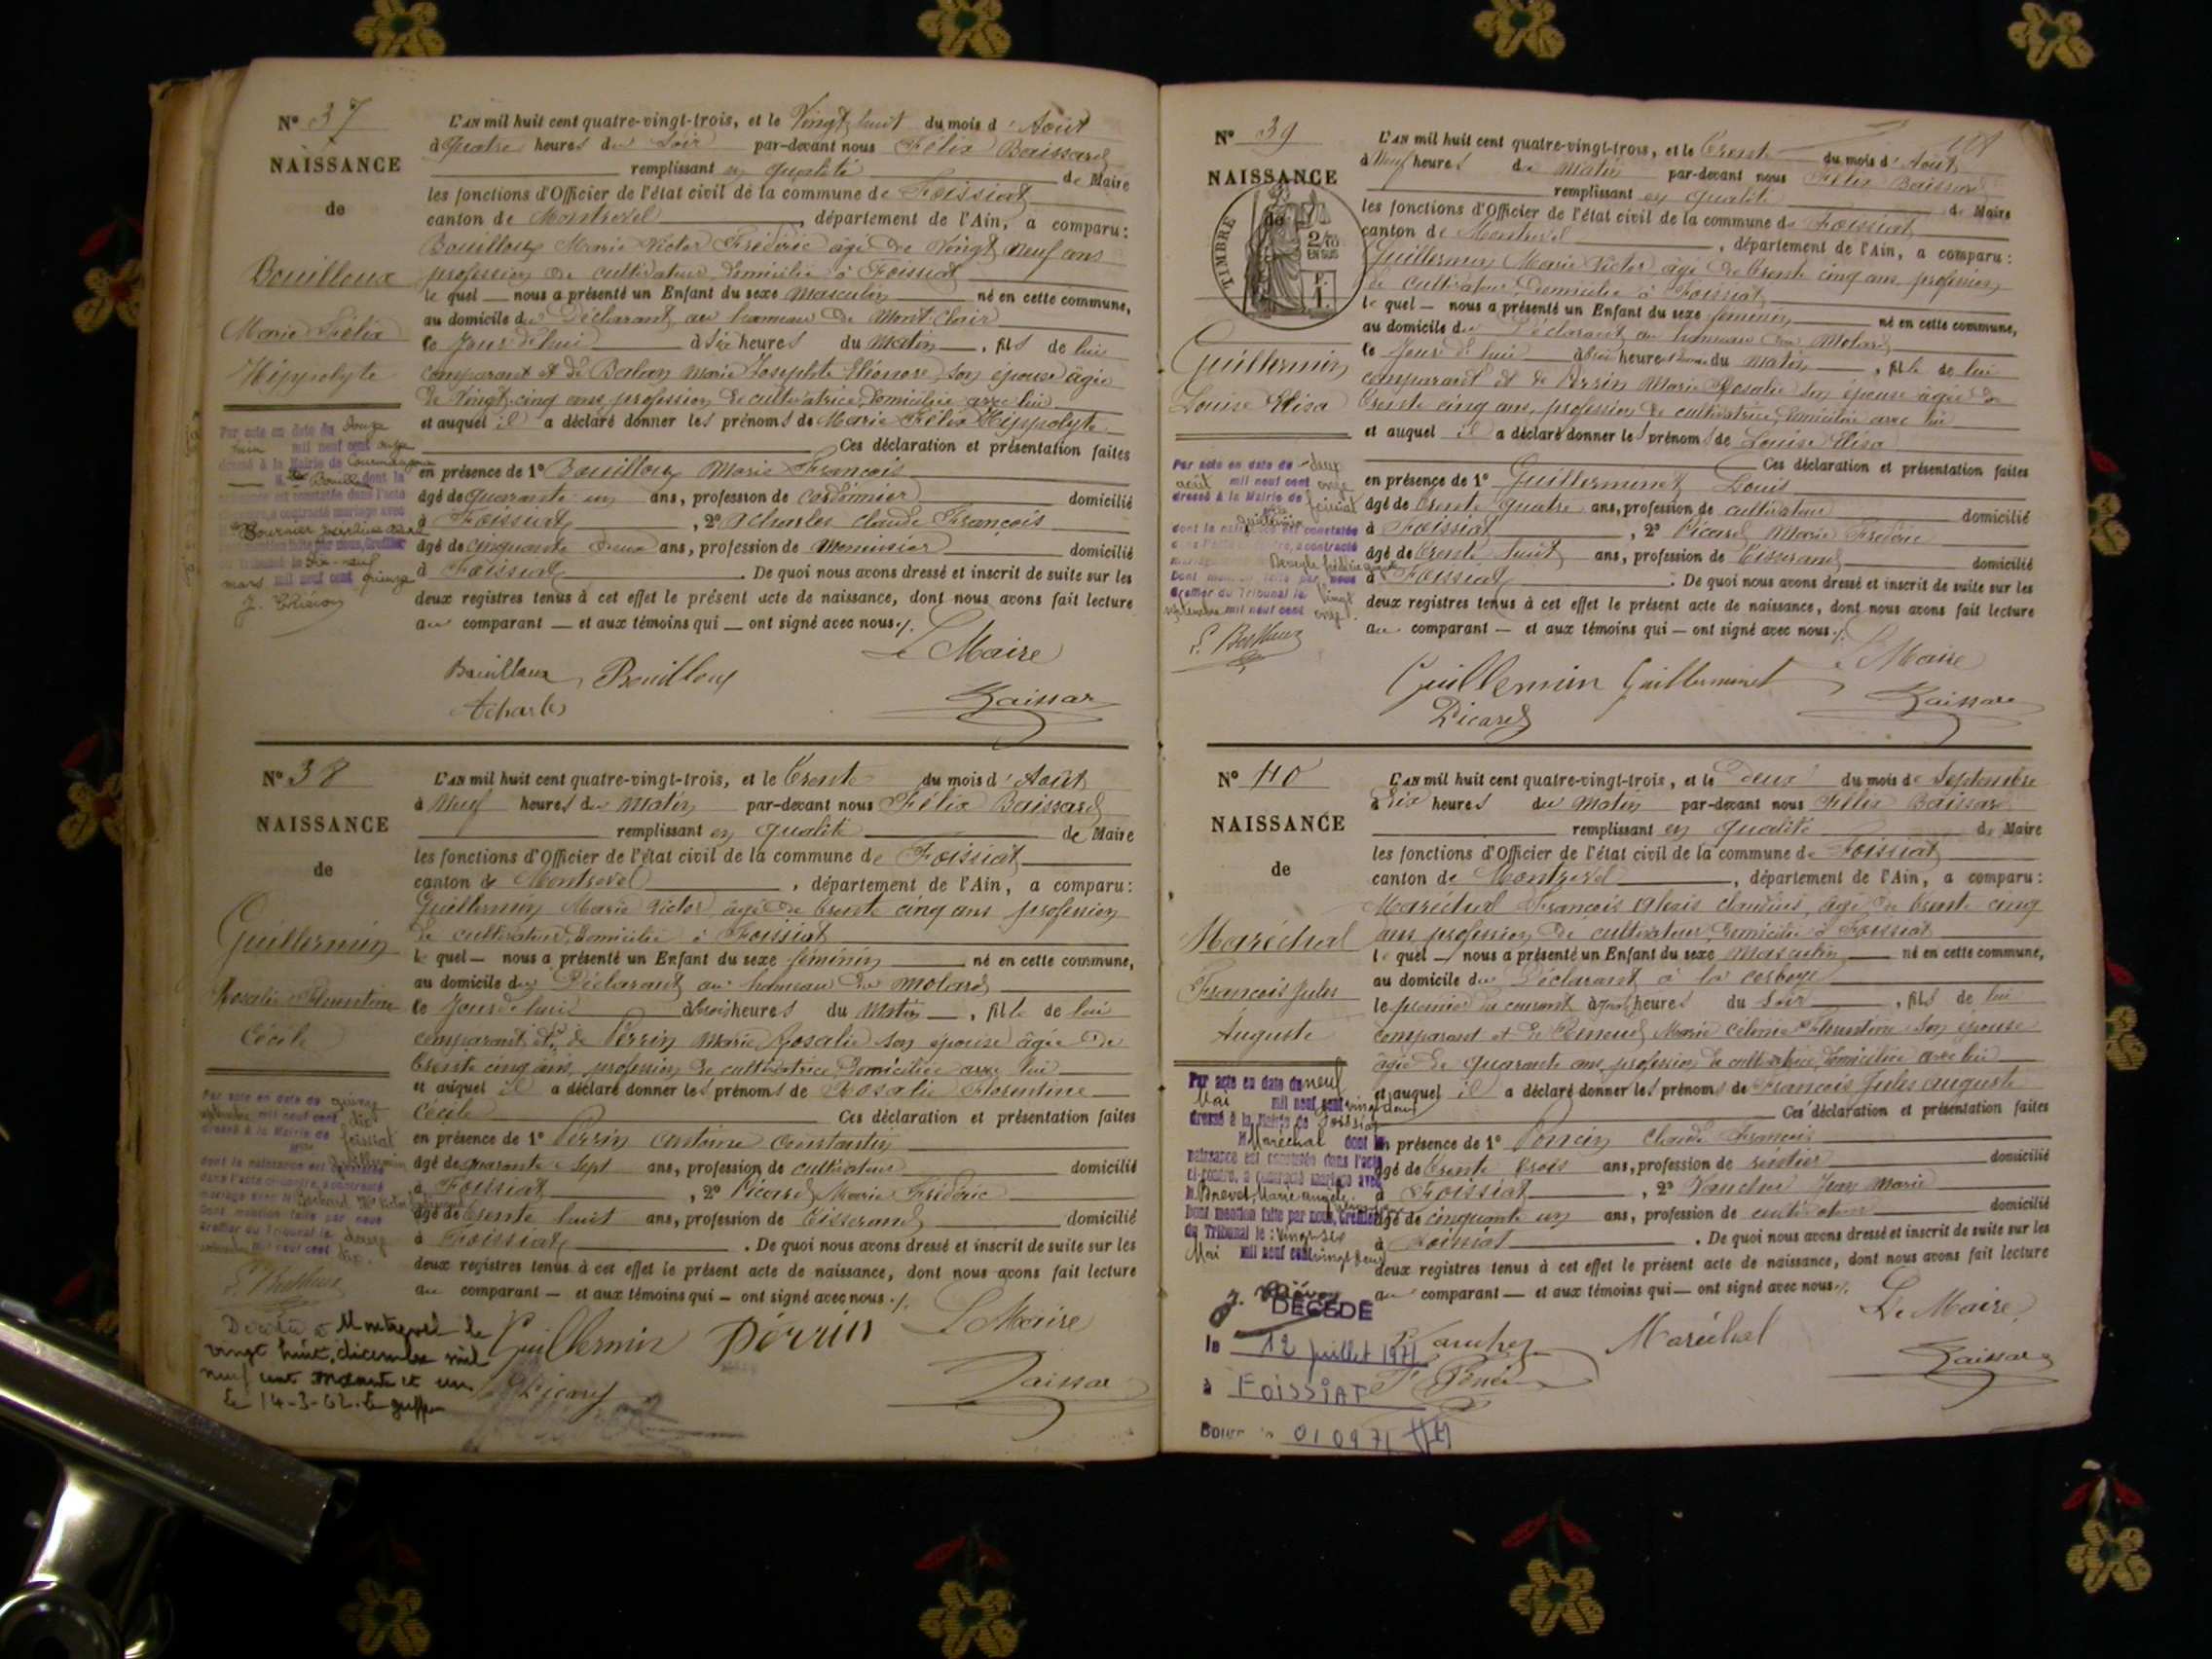 N° 37
NAISSANCE
de
Bouilloux
Marie Félix
Hippolyte
Par acte en date du douze
juin mil neuf cent onze
dressé à la Mairie de
M. Bouilloux dont la
naissance est constatée dans l'acte
ci-contre, a contracté mariage avec
mars mil neuf cent quinze
L'AN mil huit cent quatre-vingt-trois, et le Vingt huit du mois d'Août
à Quatre heures du Soir par-devant nous Félix Baissard
remplissant en qualité de Maire
les fonctions d'Officier de l'état civil de la commune de Foissiat
canton de Montrevel, département de l'Ain, a comparu:
Bouilloux Marie Victor Frédéric âgé de Vingt neuf ans
profession de cultivateur domicilié à Foissiat
le quel — nous a présenté un Enfant du sexe Masculin né en cette commune,
au domicile du Déclarant au hameau de Mont Clair
le Jour d'hui à Six heures du Matin, fils de lui
comparant et de Balan Marie Josephte Eléonore son épouse âgée
de Vingt-cinq ans profession de cultivatrice domiciliée avec lui
et auquel il a déclaré donner les prénoms de Marie Félix Hippolyte
Ces déclaration et présentation faites
en présence de 1° Bouilloux Marie François
âgé de quarante un ans, profession de cordonnier domicilié
à Foissiat, 2° Acharles Claude François
âgé de cinquante deux ans, profession de Menuisier domicilié
à Foissiat. De quoi nous avons dressé et inscrit de suite sur les
deux registres tenus à cet effet le présent acte de naissance, dont nous avons fait lecture
au comparant — et aux témoins qui — ont signé avec nous ./.
Le Maire
Bouilloux Bouilloux
Acharles
Baissard
N° 38
NAISSANCE
de
Guillermin
Rosalie Florentine
Cécile
Par acte en date du quinze
septembre mil neuf cent dix
dressé à la Mairie de Foissiat
Mlle Guillermin
dont la naissance est constatée
dans l'acte ci-contre, a contracté
mariage avec
Dont mention faite par nous
Greffier du Tribunal le
mil neuf cent dix.
Décédée à Montrevel le
vingt huit décembre mil
neuf cent soixante et un
Le 14-3-62. Le greffier
L'AN mil huit cent quatre-vingt-trois, et le Trente du mois d'Août
à Neuf heures du Matin par-devant nous Félix Baissard
remplissant en qualité de Maire
les fonctions d'Officier de l'état civil de la commune de Foissiat
canton de Montrevel, département de l'Ain, a comparu:
Guillermin Marie Victor, âgé de trente cinq ans profession
de cultivateur, domicilié à Foissiat
le quel — nous a présenté un Enfant du sexe féminin né en cette commune,
au domicile du Déclarant au hameau du Molard
le Jour d'hui à trois heures du Matin, fille de lui
comparant et de Perrin Marie Rosalie son épouse âgée de
trente cinq ans, profession de cultivatrice domiciliée avec lui
et auquel il a déclaré donner les prénoms de Rosalie Florentine
Cécile Ces déclaration et présentation faites
en présence de 1° Perrin Antoine Constantin
âgé de quarante sept ans, profession de cultivateur domicilié
à Foissiat, 2° Picard Marie Frédéric
âgé de trente huit ans, profession de Tisserand domicilié
à Foissiat. De quoi nous avons dressé et inscrit de suite sur les
deux registres tenus à cet effet le présent acte de naissance, dont nous avons fait lecture
au comparant — et aux témoins qui — ont signé avec nous ./.
Le Maire
Guillermin Perrin
Picard
Baissard
108
N° 39
NAISSANCE
de
TIMBRE
2/10
EN SUS
Guillermin
Louise Elisa
Par acte en date du deux
août mil neuf cent onze
dressé à la Mairie de Foissiat
dont la naissance est constatée
dans l'acte ci-contre, a contracté
Dont mention faite par nous
Greffier du Tribunal le vingt
septembre mil neuf cent onze.
L'AN mil huit cent quatre-vingt-trois, et le Trente du mois d'Août
à Neuf heures du Matin par-devant nous Félix Baissard
remplissant en qualité de Maire
les fonctions d'Officier de l'état civil de la commune de Foissiat
canton de Montrevel, département de l'Ain, a comparu:
Guillermin Marie Victor âgé de trente cinq ans profession
de cultivateur domicilié à Foissiat
le quel — nous a présenté un Enfant du sexe féminin né en cette commune,
au domicile du Déclarant au hameau du Molard
le Jour d'hui à heures du Matin, fille de lui
comparant et de Perrin Marie Rosalie son épouse âgée de
trente cinq ans, profession de cultivatrice domiciliée avec lui
et auquel il a déclaré donner les prénoms de Louise Elisa
Ces déclaration et présentation faites
en présence de 1° Guillerminet Louis
âgé de trente quatre ans, profession de cultivateur domicilié
à Foissiat, 2° Picard Marie Frédéric
âgé de trente huit ans, profession de Tisserand domicilié
à Foissiat. De quoi nous avons dressé et inscrit de suite sur les
deux registres tenus à cet effet le présent acte de naissance, dont nous avons fait lecture
au comparant — et aux témoins qui — ont signé avec nous ./.
Le Maire
Guillermin Guillerminet
Picard
Baissard
N° 40
NAISSANCE
de
Maréchal
François Jules
Auguste
Par acte en date du neuf
Mai mil neuf cent vingt deux
dressé à la Mairie de Foissiat
M. Maréchal dont la
naissance est constatée dans l'acte
ci-contre, a contracté mariage avec
Dont mention faite par nous, Greffier
du Tribunal le: vingt six
Mai mil neuf cent vingt deux
DÉCÉDÉ
le 12 juillet 1971
à FOISSIAT
Bourg le 010971
L'AN mil huit cent quatre-vingt-trois, et le deux du mois de Septembre
à Six heures du Matin par-devant nous Félix Baissard
remplissant en qualité de Maire
les fonctions d'Officier de l'état civil de la commune de Foissiat
canton de Montrevel, département de l'Ain, a comparu:
Maréchal François Claudius, âgé de trente cinq
ans profession de cultivateur, domicilié à Foissiat
le quel — nous a présenté un Enfant du sexe Masculin né en cette commune,
au domicile du Déclarant à la
le premier du courant à heures du Soir, fils de lui
comparant et de Renoud Marie Florentine son épouse
âgée de quarante ans, profession de cultivatrice, domiciliée avec lui
et auquel il a déclaré donner les prénoms de François Jules Auguste
Ces déclaration et présentation faites
en présence de 1° Poncin Claude François
âgé de trente trois ans, profession de rentier domicilié
à Foissiat, 2° Vaucher Jean Marie
âgé de cinquante un ans, profession de cultivateur domicilié
à Foissiat. De quoi nous avons dressé et inscrit de suite sur les
deux registres tenus à cet effet le présent acte de naissance, dont nous avons fait lecture
au comparant — et aux témoins qui — ont signé avec nous ./.
Le Maire
Vaucher Maréchal
Baissard